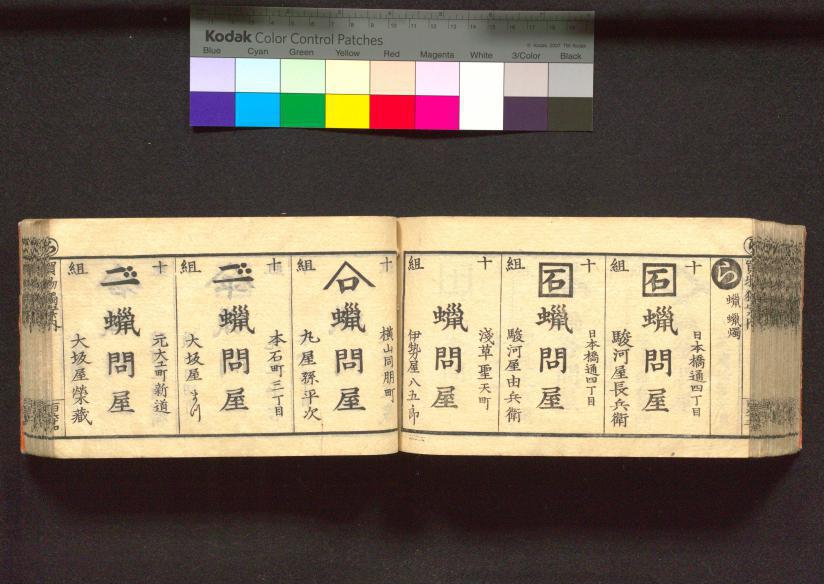 Kodak Color Control Patches
© Kodak, 2007 TM: Kodak
Blue Cyan Green Yellow Red Magenta White 3/Color Black
ら
蝋 蝋燭
十組
石
蝋問屋
日本橋通四丁目
駿河屋長兵衛
十組
石
蝋問屋
日本橋通四丁目
駿河屋由兵衛
十組
蝋問屋
淺草聖天町
伊勢屋八五郎
十組
蝋問屋
横山同朋町
丸屋孫平次
十組
蝋問屋
本石町三丁目
大坂屋
十組
蝋問屋
元大工町新道
大坂屋榮藏